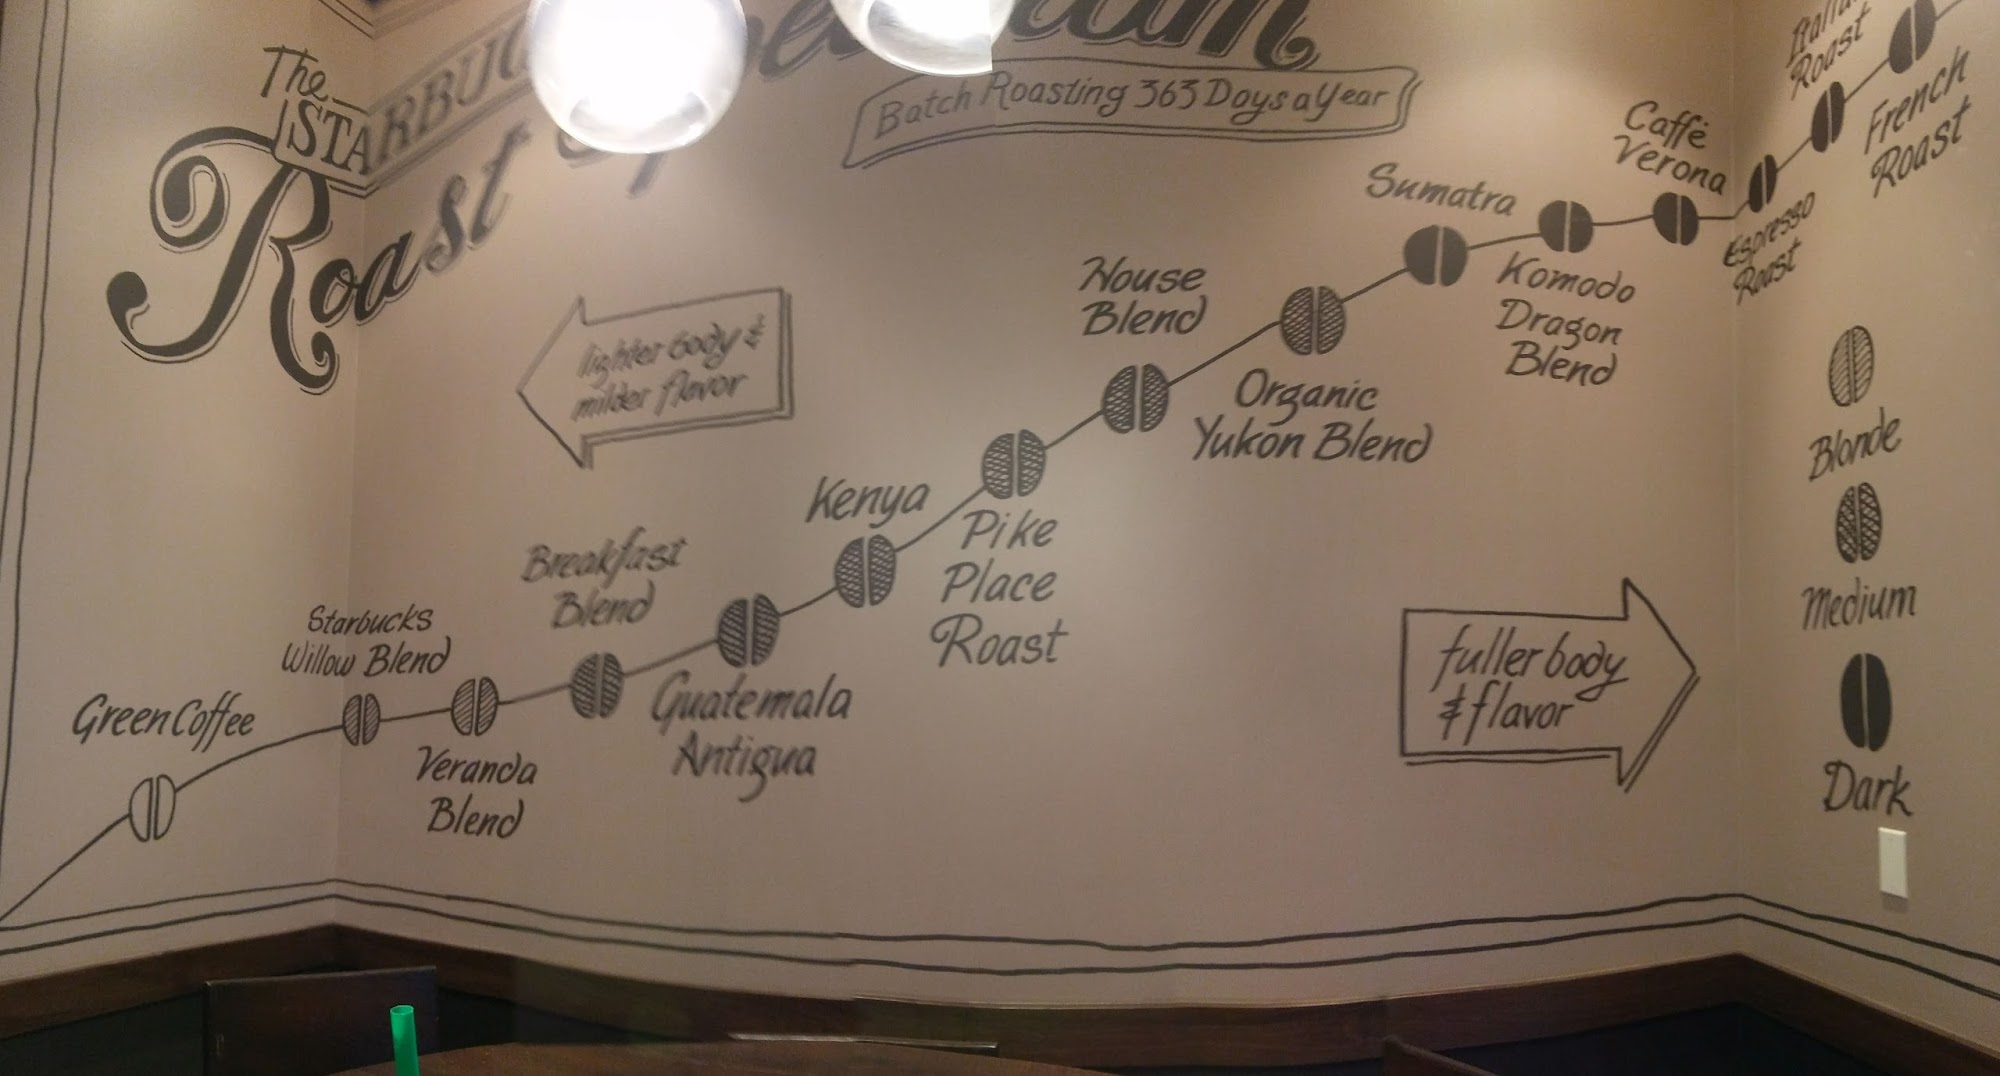 The
STARBUC
Roast
Batch Roasting 363 Days a Year
Italia
Roast
French
Roast
Caffè
Verona
Espresso
Roast
Sumatra
Komodo
Dragon
Blend
House
Blend
Organic
Yukon Blend
lighter body &
milder flavor
Kenya
Pike
Place
Roast
Breakfast
Blend
Guatemala
Antigua
Starbucks
Willow Blend
Veranda
Blend
Green Coffee
fuller body
& flavor
Blonde
Medium
Dark